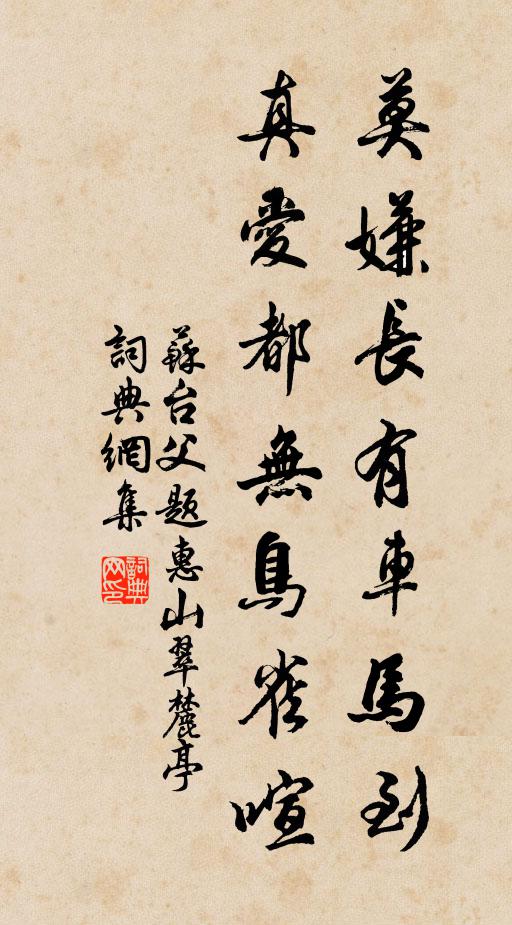 莫嫌長有車馬到
真愛都無鳥雀喧
蘇台父题惠山翠麓亭
詞典網集
詞典網印